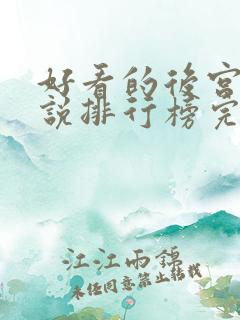 好看的後宮
說排行榜完
江江雨錦
未任同意禁止轉載